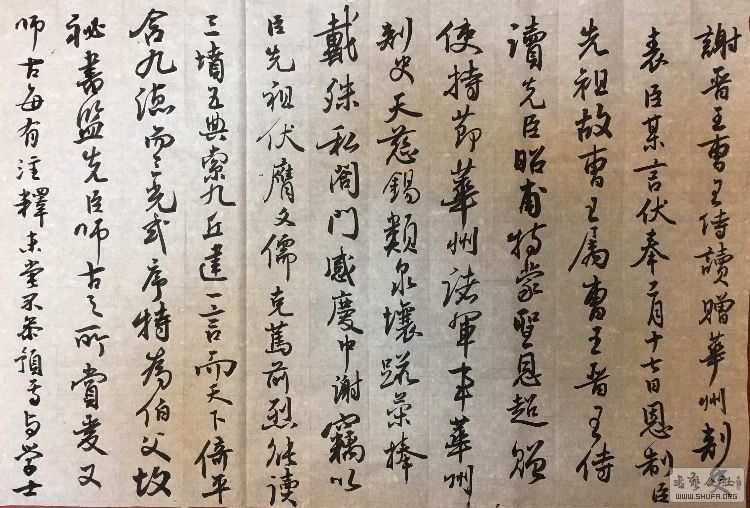 謝晉王曹王侍讀贈華州刺史
表臣某言伏奉二月十七日恩制臣
先祖故曹王屬曹王晉王侍
讀先臣昭甫特蒙聖恩超贈
使持節華州諸軍事華州
刺史天慈錫類泉壤躋榮捧
戴殊私閤門感慶中謝竊以
臣先祖伏膺文儒克篤前烈能讀
三墳五典索九丘建一言而天下倚平
含九德而三光式序特為伯父故
祕書監先臣師古之所賞愛又
師古每有注釋未嘗不參預焉与學士
WWW.SHUFA.ORG